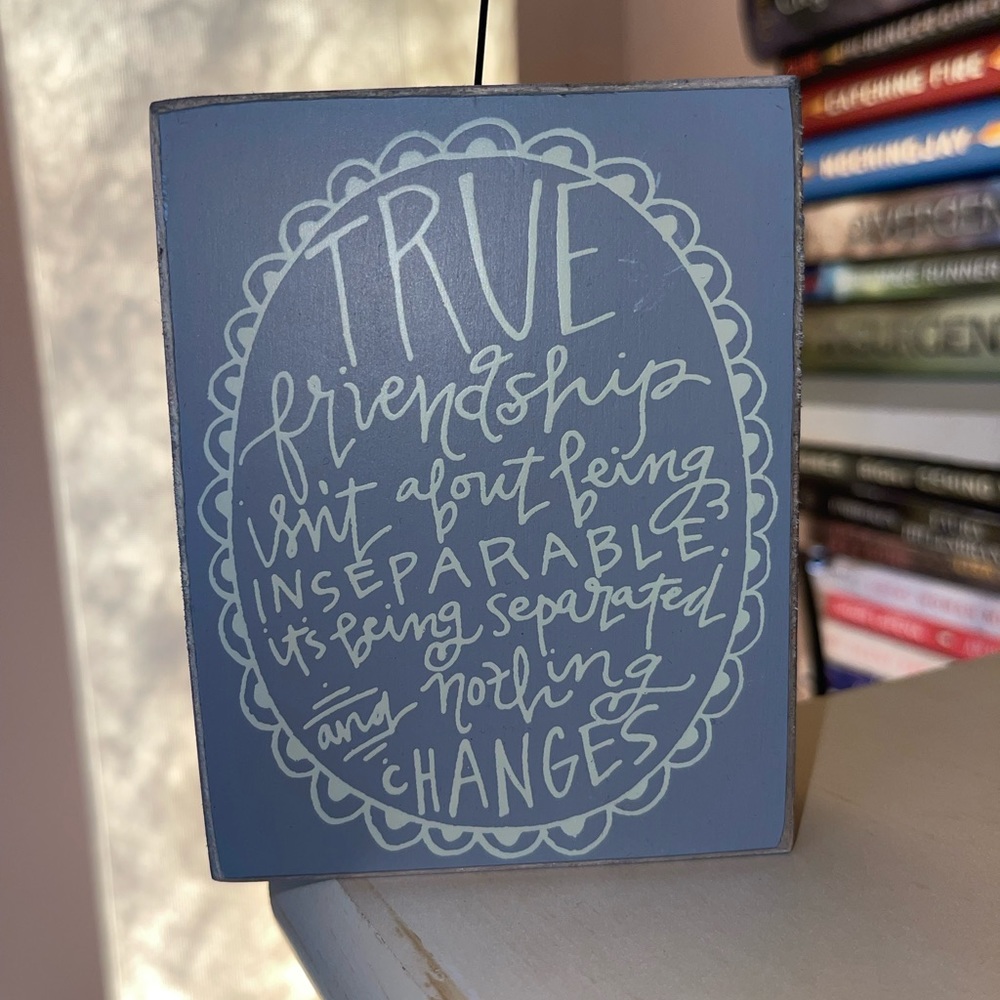 TRUE
friendship
isn't about being
INSEPARABLE;
it's being separated
and nothing
CHANGES
CATCHING FIRE
MOCKINGJAY
DIVERGEN
MAZE RUNNER
INSURGEN